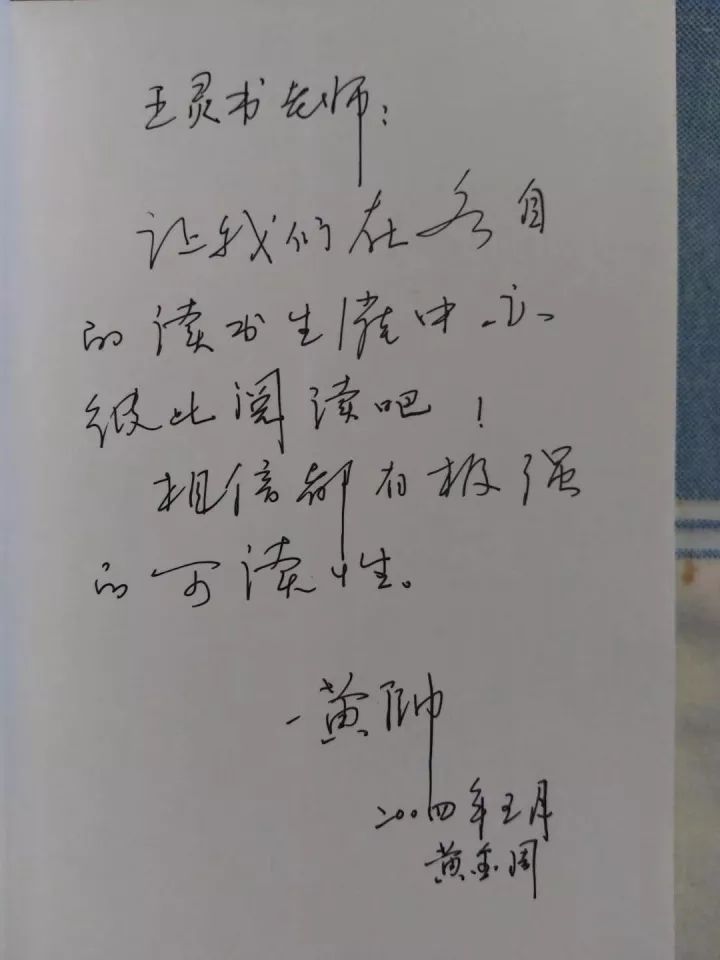 王灵书老师：
让我们在各自
的读书生涯中亦
彼此阅读吧！
相信都有极强
的可读性。
—黄帅
二〇〇四年五月
黄金周